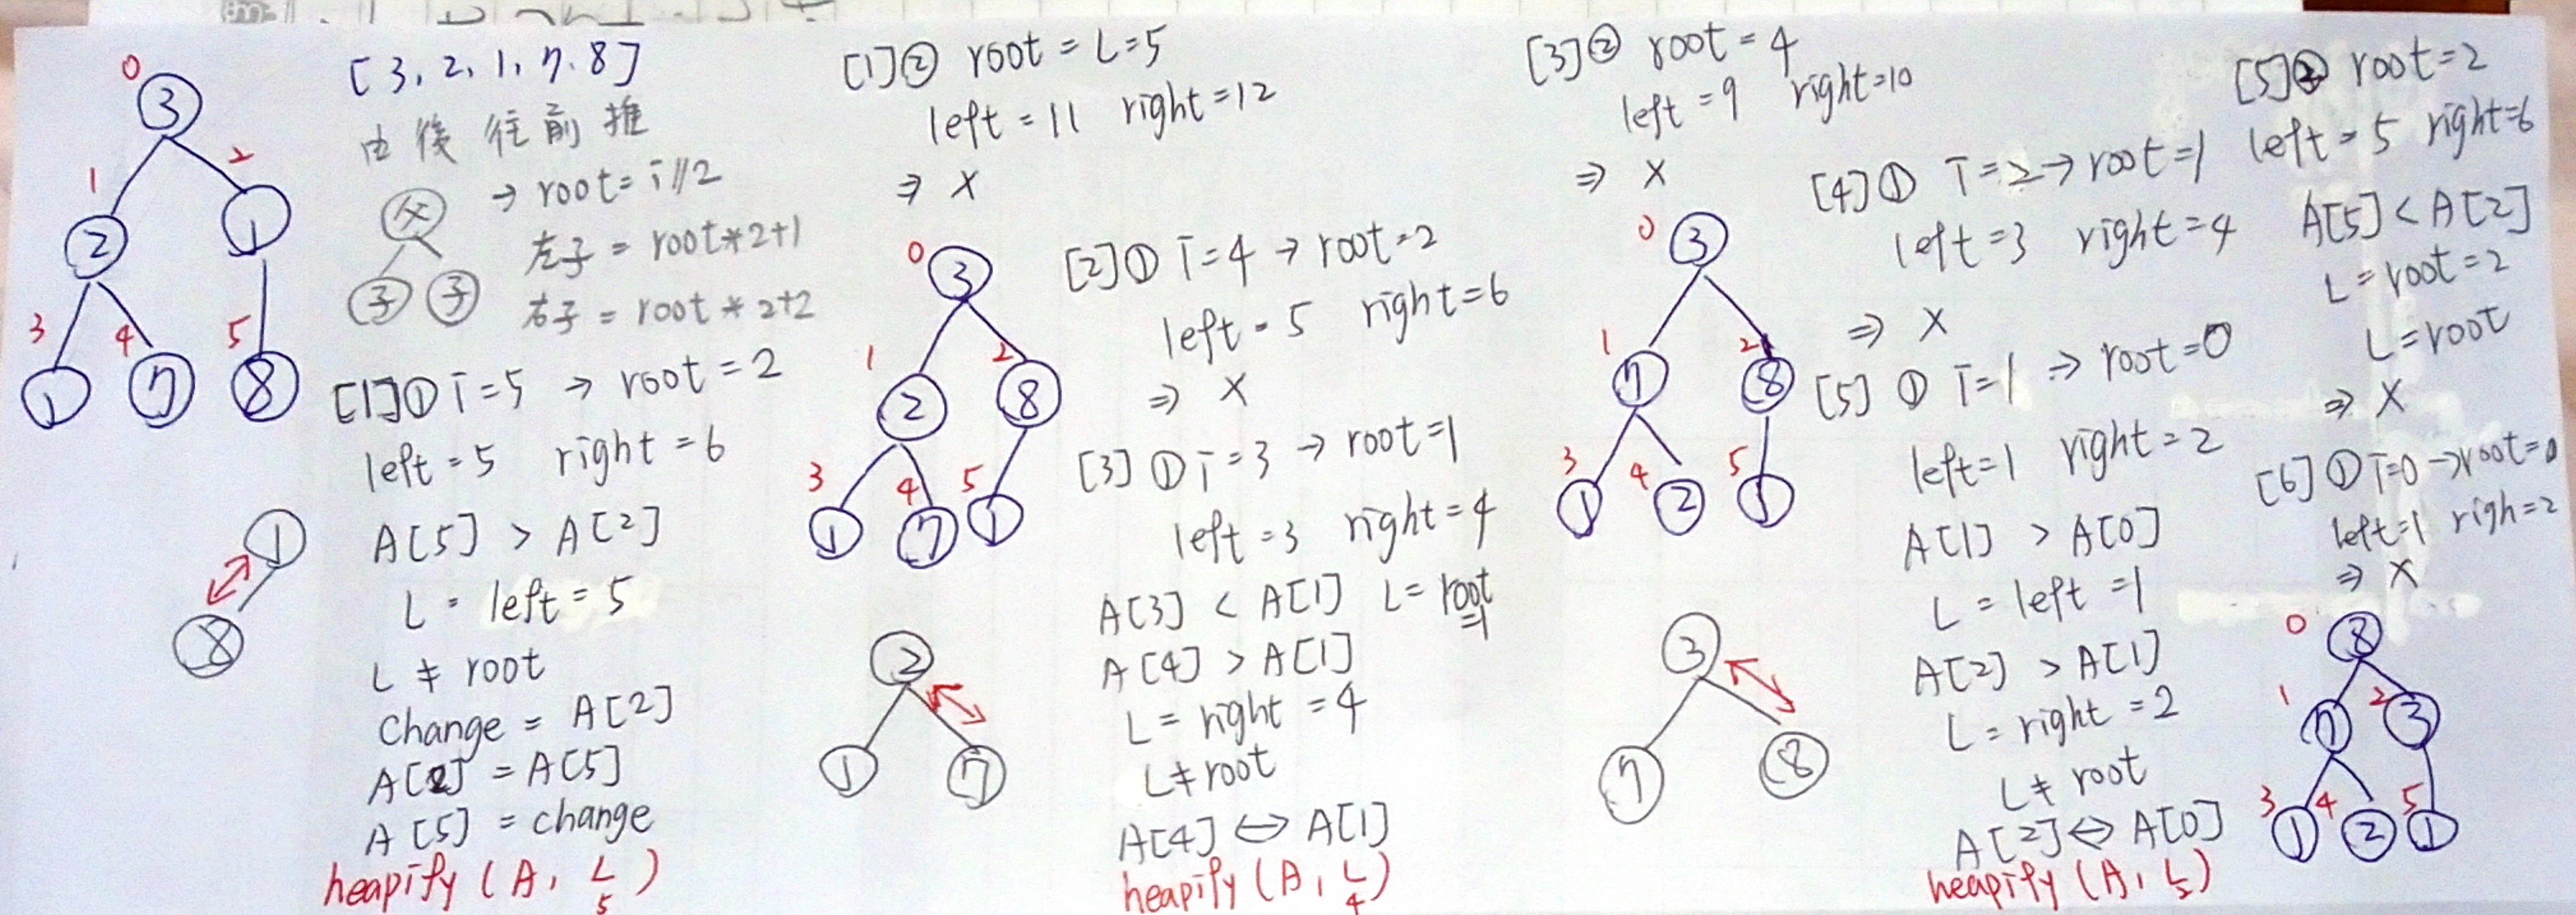 [3, 2, 1, 7, 8]
由後往前推
父
子 子
→ root = i//2
左子 = root*2+1
右子 = root*2+2
0
3
1 2
2 1
3 4 5
1 7 8
[1]① i=5 → root=2
left=5 right=6
A[5] > A[2]
L = left = 5
L ≠ root
change = A[2]
A[2] = A[5]
A[5] = change
heapify(A, L)
5
1
8
[1]② root = L = 5
left = 11 right = 12
⇒ X
0
3
1 2
2 8
3 4 5
1 7 1
2
1 7
[2]① i=4 → root=2
left = 5 right = 6
⇒ X
[3]① i=3 → root=1
left = 3 right = 4
A[3] < A[1] L = root
=1
A[4] > A[1]
L = right = 4
L ≠ root
A[4] ⇔ A[1]
heapify(A, L)
4
[3]② root = 4
left = 9 right = 10
⇒ X
0
3
1 2
7 8
3 4 5
1 2 1
3
7 8
[4]① i=2 → root=1
left = 3 right = 4
⇒ X
[5]① i=1 → root=0
left=1 right=2
A[1] > A[0]
L = left = 1
A[2] > A[1]
L = right = 2
L ≠ root
A[2] ⇔ A[0]
heapify(A, L)
[5]② root=2
left = 5 right=6
A[5] < A[2]
L = root = 2
L = root
⇒ X
[6]① i=0 → root=0
left=1 righ=2
⇒ X
0
8
1 2
7 3
3 4 5
1 2 1